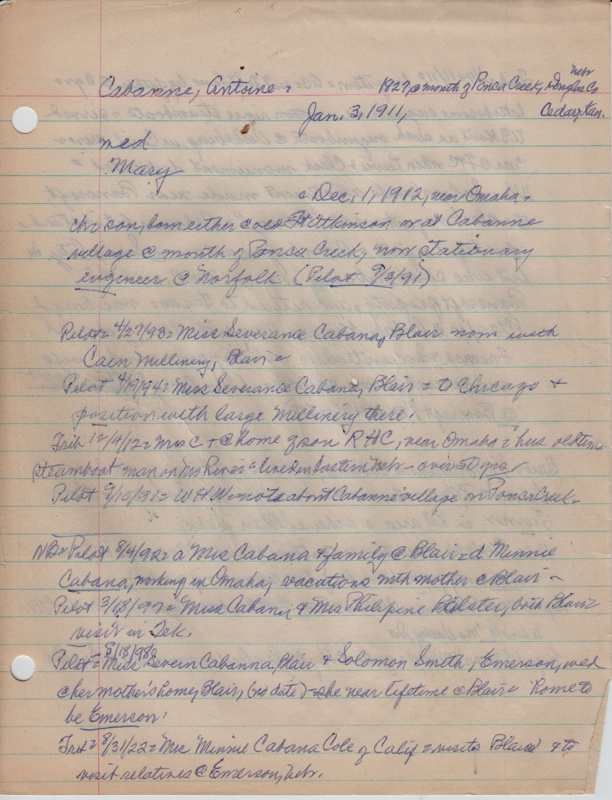 Cabanne, Antoine, 1827 @ month of Ponca Creek, Douglas Co Nebr
Jan. 3, 1911, Cedar
med
Mary
Dec. 1, 1912, near Omaha -
ch: son, born either @ Ft Atkinson or at Cabanne
village @ month of Ponca Creek, now stationary
engineer @ Norfolk (Pilot 9/3/91)
Pilot = 4/27/93 = Miss Severance Cabana, Blair now with
Cain Millinery, Blair
Pilot 4/19/94 = Miss Severance Cabana, Blair = to Chicago +
position with large Millinery there.
Trib 12/4/12 = Mrs C + @ home of son RHC, near Omaha = hus old time
steamboat man on Mo River = lived in Eastern Nebr - over 50 yrs
Pilot 9/10/31 = WH Woods note about Cabanne village on Ponca Creek -
NB = Pilot 8/4/98 = a Mrs Cabana & family @ Blair = d. Minnie
Cabana, working in Omaha, vacations with mother @ Blair -
Pilot 3/18/97 = Miss Cabana & Mrs Philipine both Blair
visit in Tek.
Pilot = 8/18/98 = Miss Severn Cabanna, Blair & Solomon Smith, Emerson, wed
@ her mother's home, Blair, (no date) = she near lifetime @ Blair = Home to
be Emerson.
Trib = 8/31/22 = Mrs Minnie Cabana Cole of Calif = visits Blair & to
visit relatives @ Emerson, Nebr.